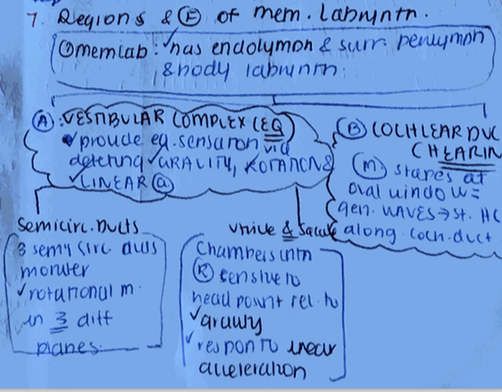 7. Regions & Ⓕ of mem. labyrinth.
memlab: has endolymph & surr. perilymph
& body labyrinth.
Ⓐ VESTIBULAR COMPLEX (EQ)
✓ provide eq. sensation via
detecting ✓ GRAVITY, ROTATION &
✓ LINEAR ⓐ
Ⓑ COCHLEAR DUC
CHEARIN
ⓜ stapes at
oval window =
gen. WAVES → st. HC
along coch. duct
semicirc. Ducts
3 semi circ ducts
moniter
✓ rotational m.
in 3 diff
planes.
utricle & Saccule
Chambers with
Ⓡ sensitive to
head positn rel. to
✓ gravity
✓ respon to linear
acceleration